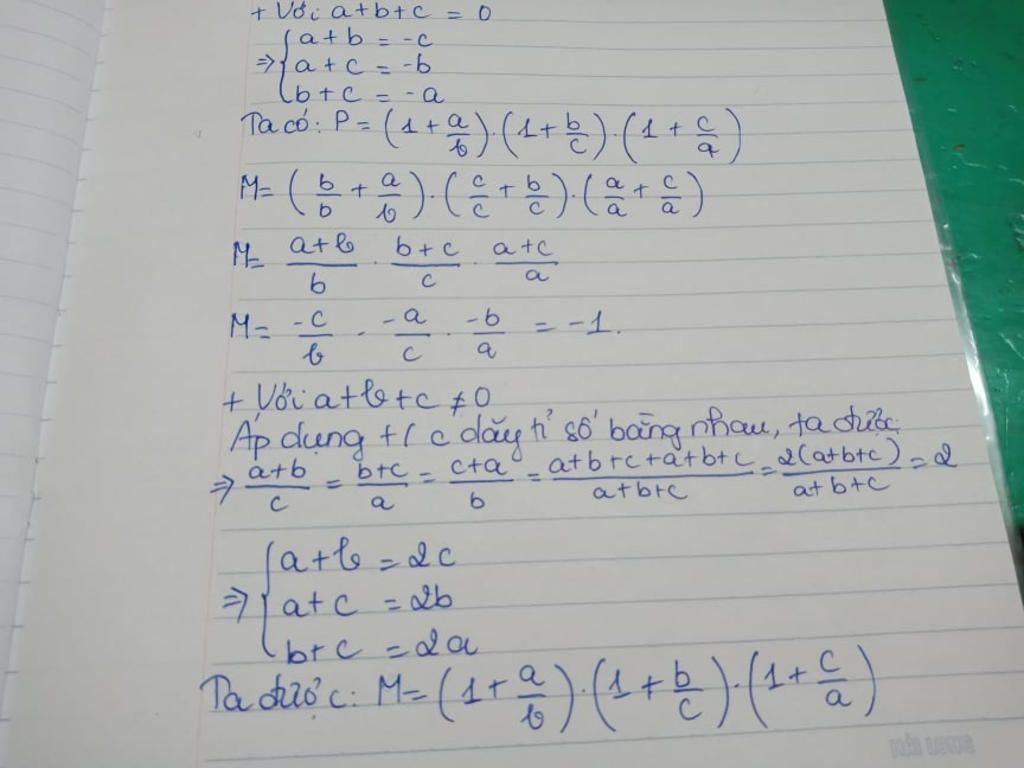 + Với a+b+c = 0
⇒ { a+b = -c
a+c = -b
b+c = -a
Ta có: P = (1 + a/b).(1 + b/c).(1 + c/a)
M = (b/b + a/b).(c/c + b/c).(a/a + c/a)
M = (a+b)/b . (b+c)/c . (a+c)/a
M = -c/b . -a/c . -b/a = -1.
+ Với a+b+c ≠ 0
Áp dụng t/c dãy tỉ số bằng nhau, ta được:
⇒ (a+b)/c = (b+c)/a = (c+a)/b = (a+b+c+a+b+c)/(a+b+c) = 2(a+b+c)/(a+b+c) = 2
⇒ { a+b = 2c
a+c = 2b
b+c = 2a
Ta được: M = (1 + a/b).(1 + b/c).(1 + c/a)